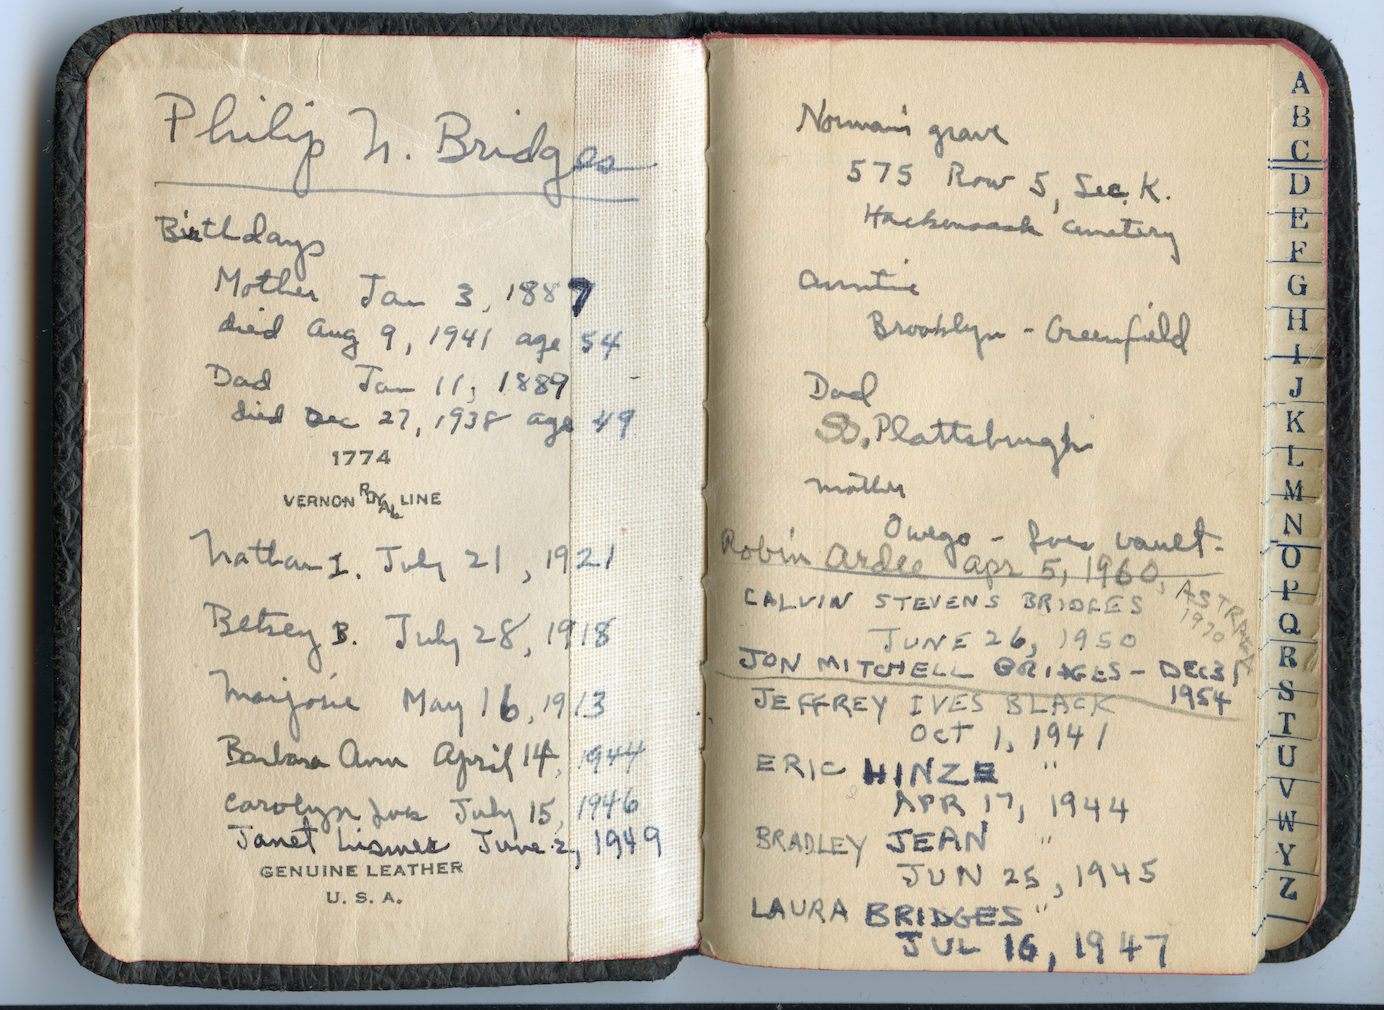 Philip N. Bridges
Birthdays
Mother Jan 3, 1887
died Aug 9, 1941 age 54
Dad Jan 11, 1889
died Dec 27, 1938 age 49
1774
VERNON ROYAL LINE
Nathan I. July 21, 1921
Betsey B. July 28, 1918
Marjorie May 16, 1913
Barbara Ann April 14, 1944
Carolyn Ives July 15, 1946
Janet Lismer June 2, 1949
GENUINE LEATHER
U. S. A.
Norman's grave
575 Row 5, Sec. K.
Hackensack Cemetery
Auntie
Brooklyn - Greenfield
Dad
So. Plattsburgh
Mother
Owego - Ives vault.
Robin Ardee Apr 5, 1960,
ASTRA
1970
CALVIN STEVENS BRIDGES
JUNE 26, 1950
JON MITCHELL BRIDGES - DEC 31
1954
JEFFREY IVES BLACK
OCT 1, 1941
ERIC HINZE "
APR 17, 1944
BRADLEY JEAN "
JUN 25, 1945
LAURA BRIDGES "
JUL 16, 1947
A
B
C
D
E
F
G
H
I
J
K
L
M
N
O
P
Q
R
S
T
U
V
W
Y
Z